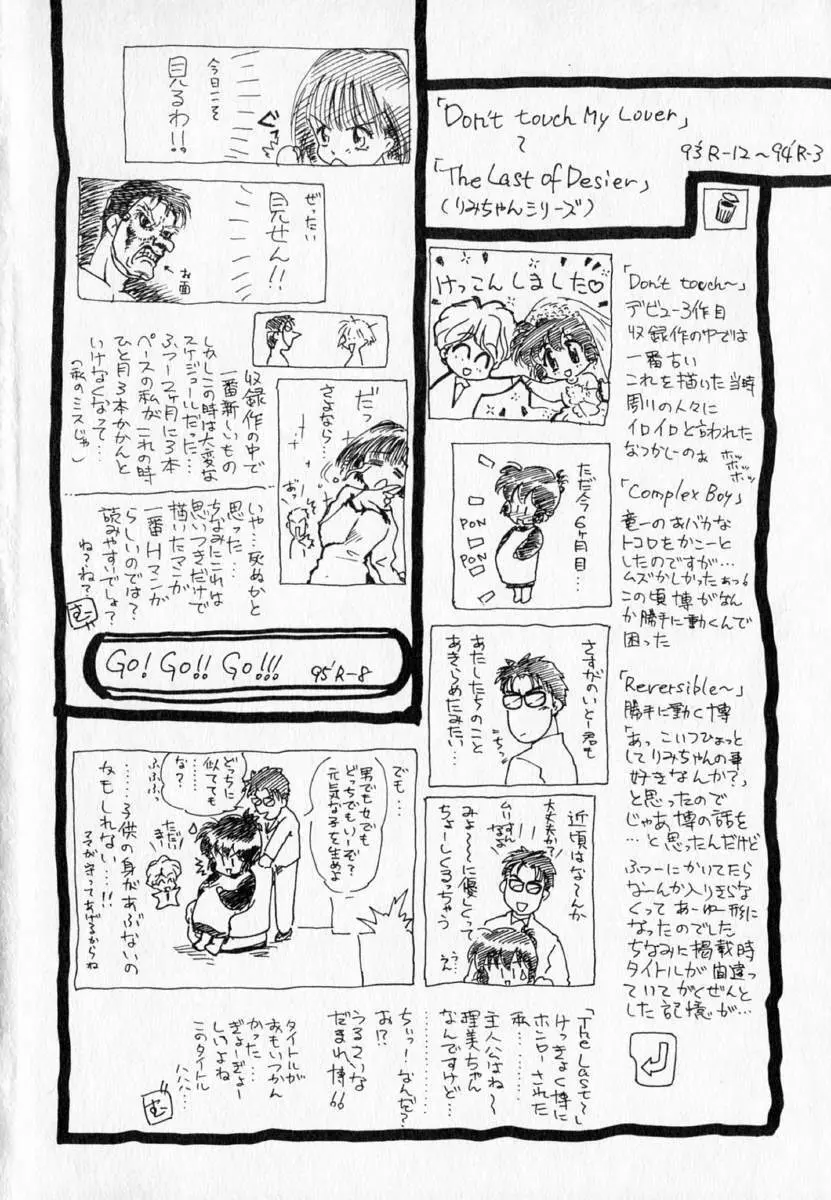 「Don't touch My Lover」
〜
「The Last of Desier」
(りみちゃんシリーズ)
93'R-12〜94'R-3
「Don't touch〜」
デビュー3作目
収録作の中では
一番古い
これを描いた当時
周りの人々に
イロイロと言われた
なつかしーのぉ
ホッ
ホッ
ホッ
「Complex Boy」
竜一のおバカな
トコロをかこーと
したのですが…
ムズかしかったぁっ。
この頃博がなん
か勝手に動くんで
困った
「Reversible〜」
勝手に動く博
「あっこいつひょっと
してりみちゃんの事
好きなんか?」
と思ったので
じゃあ博の話を
…と思ったんだけど
ふつーにかいてたら
なーんか入りきらな
くってあーゆー形に
なったのでした
ちなみに掲載時
タイトルが間違っ
ていてがくぜんと
した記憶が…
けっこんしました♡
ただ今6ヶ月目…
PON
PON
さすがのいとー君も
あたしたちのこと
あきらめたみたい…
近頃はな〜んか
みょ〜〜に優しくって
ちょーしくるっちゃう
大丈夫か?
ムリすん
なよ
うん
「The Last〜」
けっきょく博に
ホンローされた
私…
主人公はね〜
理美ちゃん
なんですけど…
ちぃっ!なんだ?
お!?
うるさいな
だまれ博!!
タイトルが
おもいつかん
かった…
ぎょーぎょー
しいよね
このタイトル
ハハハ…
でも…
男でも女でも
どっちでもいーぞ?
元気な子を生めよ
どっちに
似てても
な?
ふふふっ
ただいまー
……子供の身があぶないの
かもしれない…!!
ママが守ってあげるからね
今日こそ
見るわ!!
ぜったい
見せん!!
お面
だっ
さよなら…
おーっ
収録作の中で
一番新しいもの
しかしこの時は大変な
スケジュールだった…
ふつー2ヶ月に3本
ペースの私がこれの時
ひと月3本かかんと
いけなくなって…
(私のミスじゃ)
いや…死ぬかと
思った…
ちなみにこれは
思いつきだけで
描いたマンガ
一番Hマンガ
らしいのでは?
読みやすいでしょ?
ね?ね?
Go! Go!! Go!!! 95'R-8